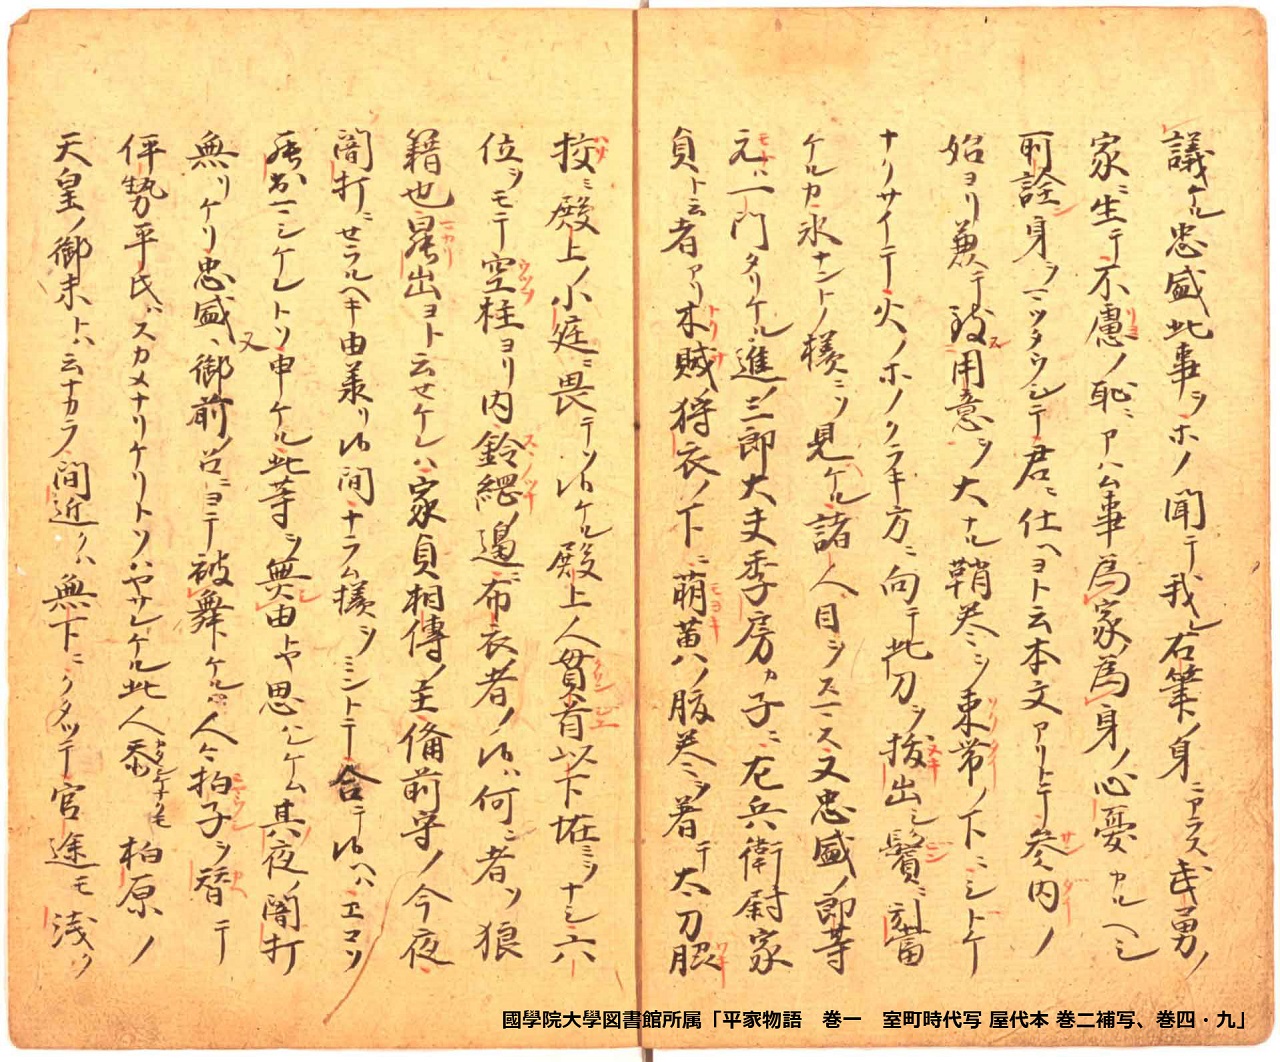 議ケル忠盛此事ヲホノ聞テ我レ右筆ノ身ニアラス武勇ノ
家ニ生テ不慮ノ恥ニアハム事為家為身ノ心憂カルヘシ
所詮身ヲマツタウシテ君ニ仕ヘヨト云本文アリトテ参内ノ
始ヨリ兼テ致用意ヲ大ナル鞘巻ヲシ束帯ノ下ニシトケ
ナリサイテ火ノホノクラキ方ニ向テ此刀ヲ抜出シ鬢ニ引当
ケルカ氷ナントノ様ニソ見ケル諸人目ヲスマス又忠盛ノ郎等
元ハ一門タリケル進ノ三郎大夫季房カ子ニ左兵衛尉家
貞ト云者アリ木賊狩衣ノ下ニ萌黄ノ腹巻ヲ着テ太刀脇
挍ミ殿上ノ小庭ニ畏テソ候ケル殿上人貫首以下怪ミヲナシ六
位ヲモテ空柱ヨリ内鈴綱ノ邉ニ布衣者ノ候ハ何者ソ狼
籍也罷出ヨト云セケレハ家貞相傳ノ主備前守ノ今夜
闇打ニセラルヘキ由承リ候間ナラム様ヲミントテ台テ候ヘハエコソ
罷出マシケレトソ申ケル此等ヲ無由トヤ思ハレケム其夜ノ闇打
無リケリ忠盛又御前ノ召ニヨテ被舞ケルニ人々拍子ヲ替テ
伊勢平氏ハスカメナリケリトソハヤサレケル此人忝 柏原ノ
天皇ノ御末トハ云ナカラ間近クハ無下ニクタツテ官途モ浅ク
國學院大學図書館所属「平家物語　巻一　室町時代写 屋代本 巻二補写、巻四・九」